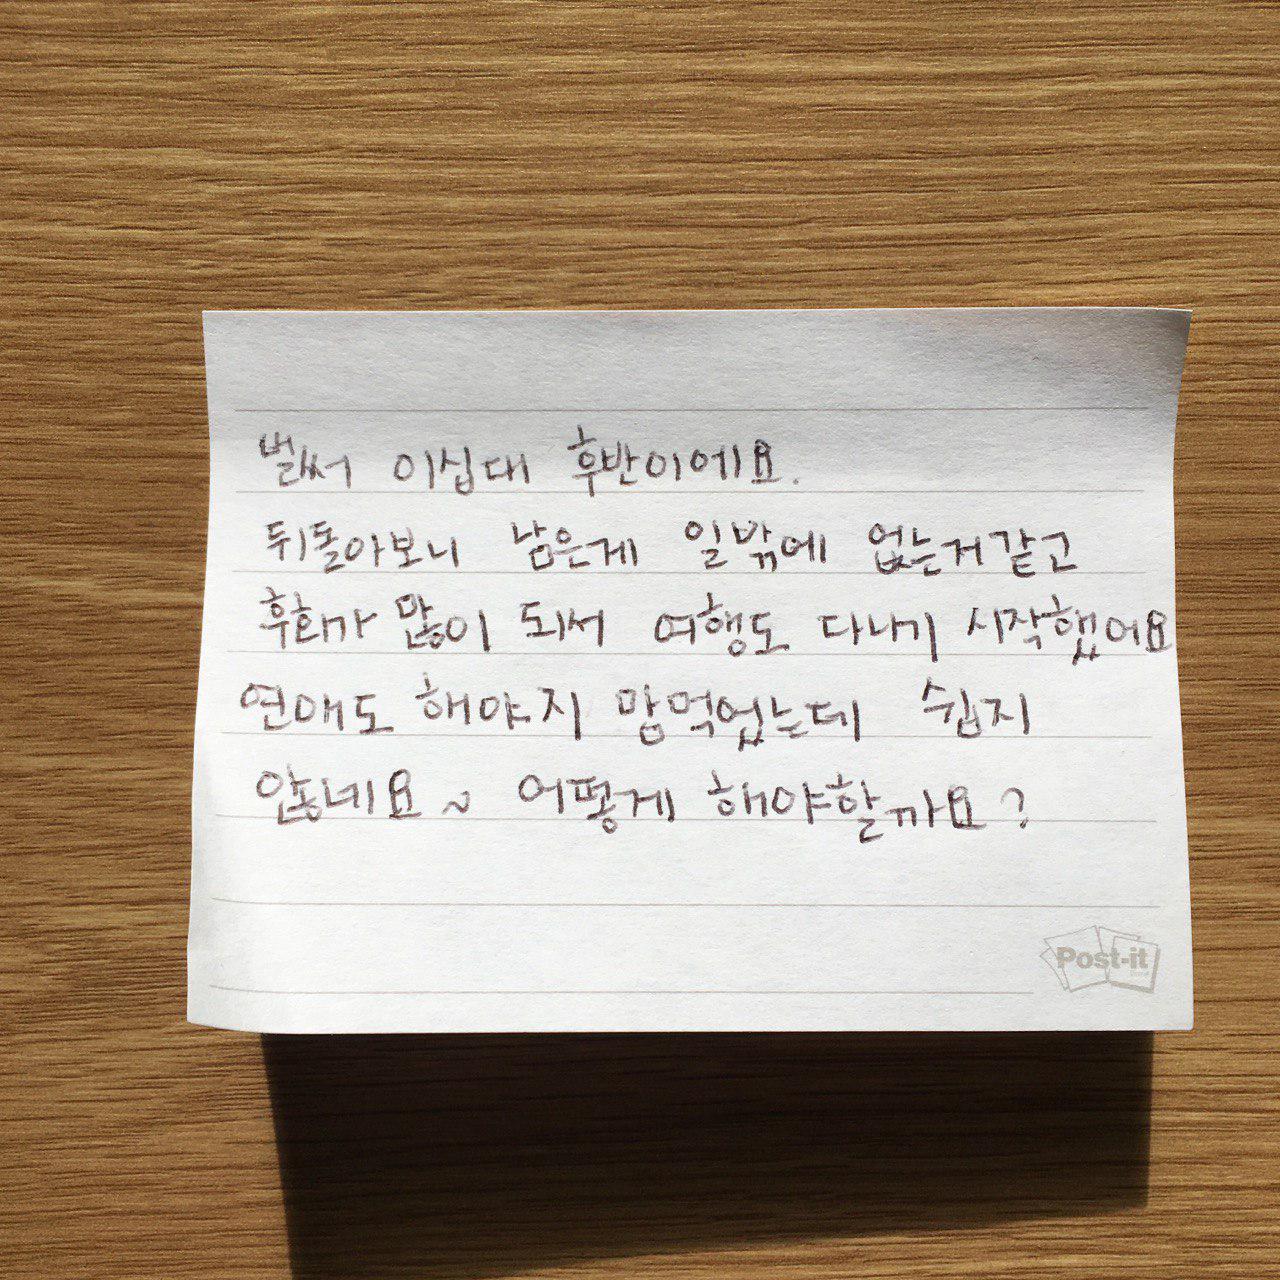 벌써 이십대 후반이에요.
뒤돌아보니 남은게 일밖에 없는거같고
후회가 많이 되서 여행도 다니기 시작했어요
연애도 해야지 맘먹었는데 쉽지
않네요~ 어떻게 해야할까요?
Post-it